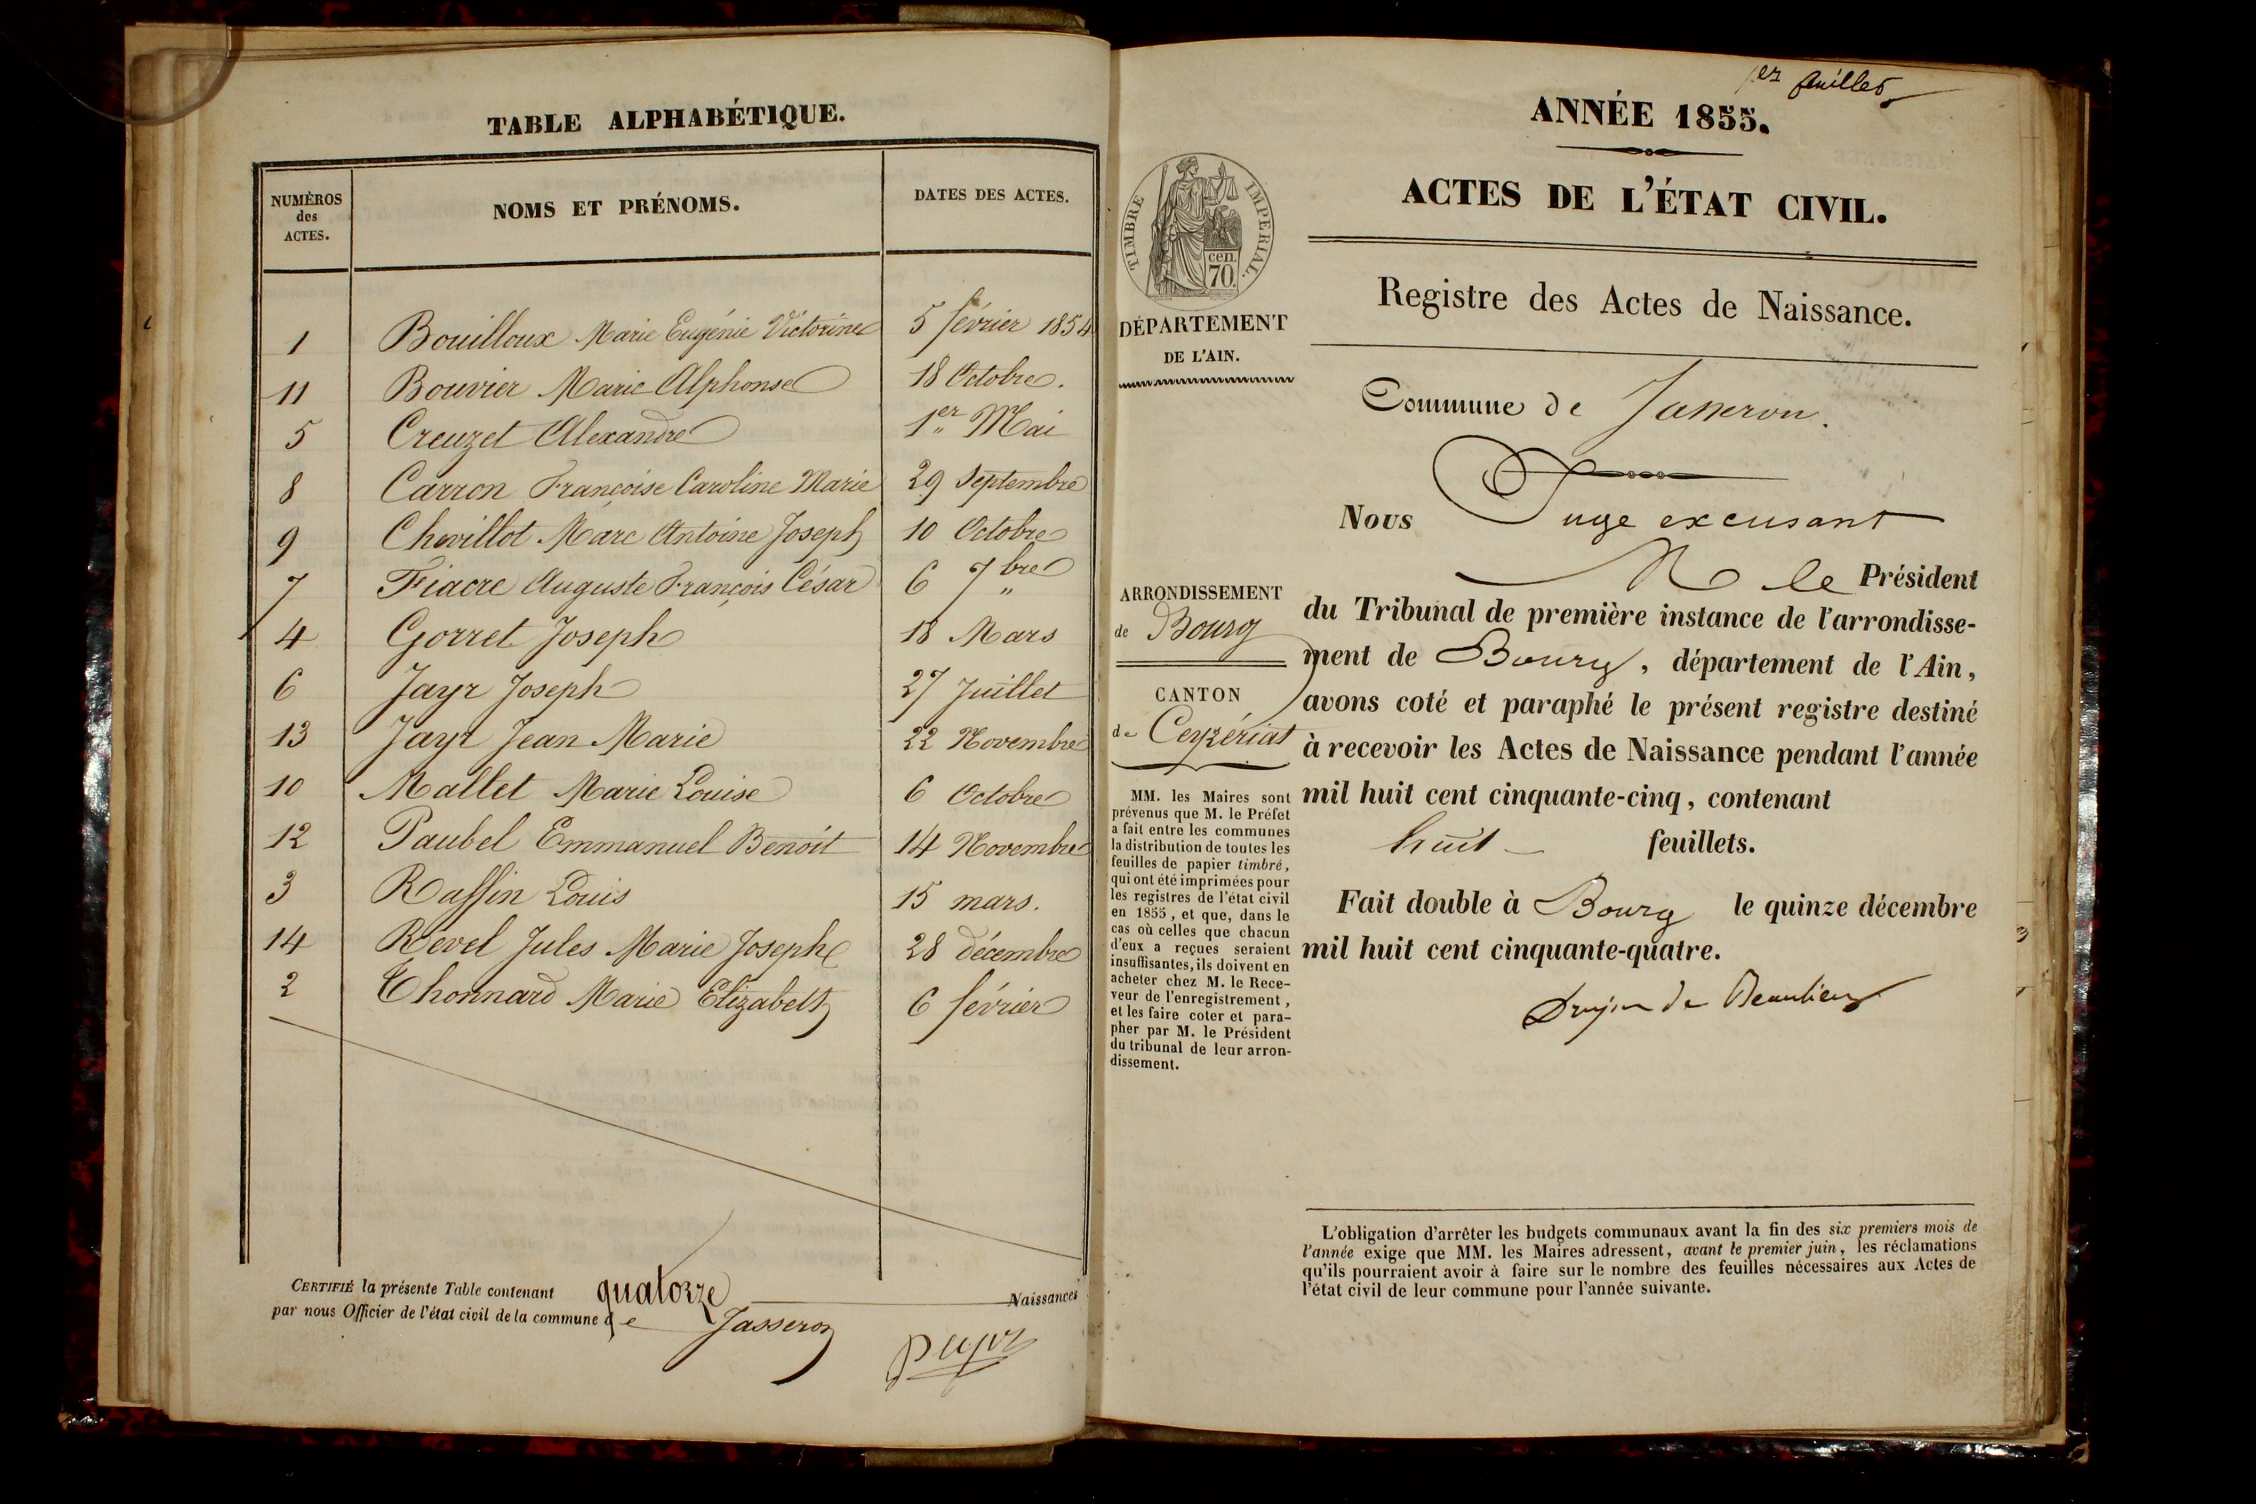 TABLE ALPHABÉTIQUE.
NUMÉROS
des
ACTES.
NOMS ET PRÉNOMS.
DATES DES ACTES.
1 Bouilloux Marie Eugénie Victorine 5 février 1854
11 Bouvier Marie Alphonse 18 Octobre.
5 Creuzet Alexandre 1er Mai
8 Carron Françoise Caroline Marie 29 Septembre
9 Chevillot Marc Antoine Joseph 10 Octobre
7 Fiacre Auguste François César 6 7bre
4 Gorret Joseph 18 Mars
6 Jayr Joseph 27 Juillet
13 Jayr Jean Marie 22 Novembre
10 Mallet Marie Louise 6 Octobre
12 Paubel Emmanuel Benoît 14 Novembre
3 Raffin Louis 15 mars.
14 Revel Jules Marie Joseph 28 décembre
2 Thonnard Marie Elizabeth 6 février
CERTIFIÉ la présente Table contenant quatorze Naissances
par nous Officier de l'état civil de la commune de Jasseron
1er feuillet
ANNÉE 1855.
ACTES DE L'ÉTAT CIVIL.
Registre des Actes de Naissance.
TIMBRE IMPERIAL.
cen.
70.
DÉPARTEMENT
DE L'AIN.
ARRONDISSEMENT
de Bourg
CANTON
de Ceyzériat
MM. les Maires sont
prévenus que M. le Préfet
a fait entre les communes
la distribution de toutes les
feuilles de papier timbré,
qui ont été imprimées pour
les registres de l'état civil
en 1855, et que, dans le
cas où celles que chacun
d'eux a reçues seraient
insuffisantes, ils doivent en
acheter chez M. le Rece-
veur de l'enregistrement,
et les faire coter et para-
pher par M. le Président
du tribunal de leur arron-
dissement.
Commune de Jasseron.
Nous Juge excusant
M le Président
du Tribunal de première instance de l'arrondisse-
ment de Bourg, département de l'Ain,
avons coté et paraphé le présent registre destiné
à recevoir les Actes de Naissance pendant l'année
mil huit cent cinquante-cinq, contenant
huit feuillets.
Fait double à Bourg le quinze décembre
mil huit cent cinquante-quatre.
de Beaulieu
L'obligation d'arrêter les budgets communaux avant la fin des six premiers mois de
l'année exige que MM. les Maires adressent, avant le premier juin, les réclamations
qu'ils pourraient avoir à faire sur le nombre des feuilles nécessaires aux Actes de
l'état civil de leur commune pour l'année suivante.